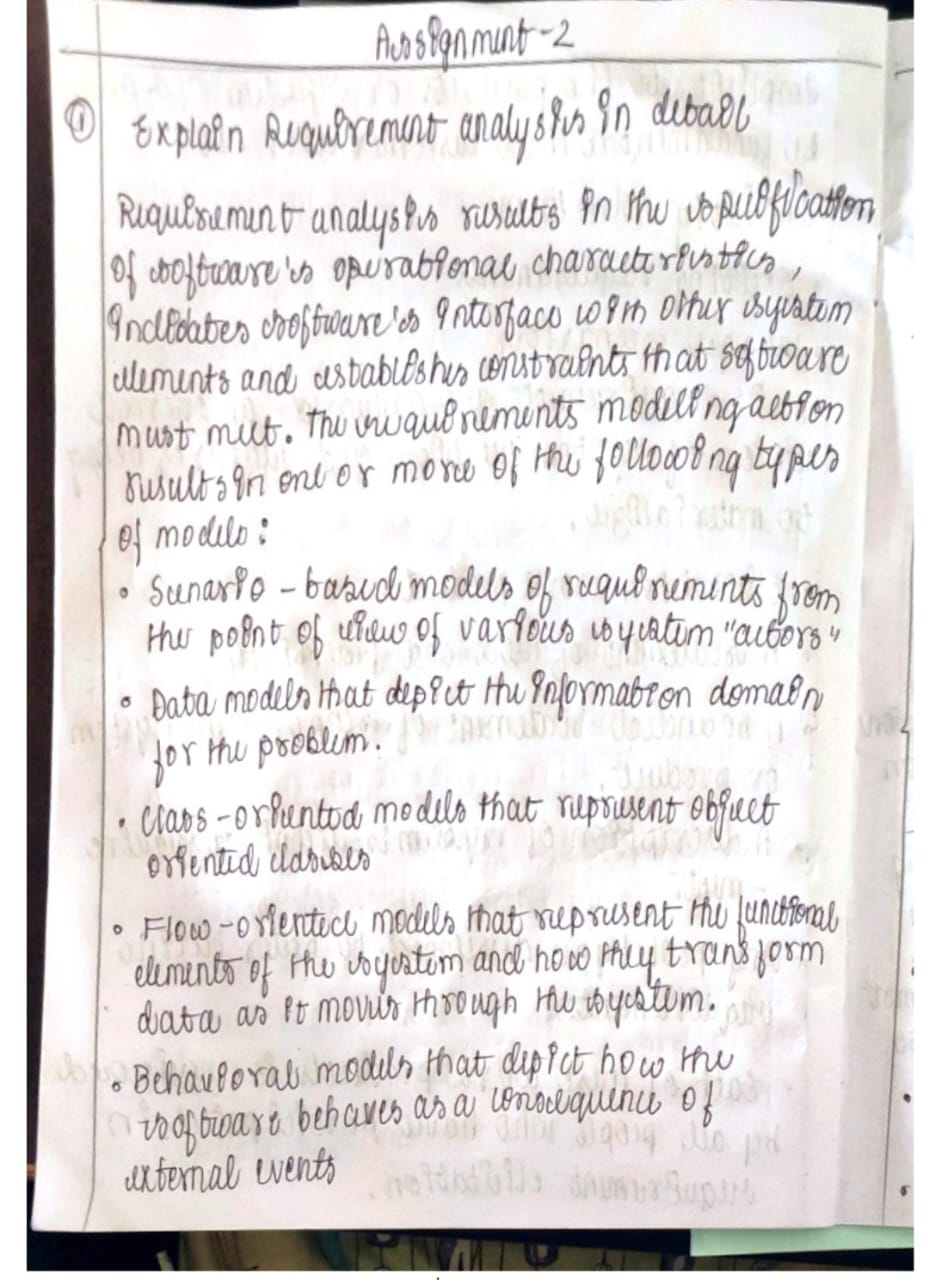 Assignment-2
① Explain Requirement analysis in detail
Requirement analysis results in the specification
of software's operational characteristics,
indidates software's interface with other system
elements and establishes constraints that software
must meet. The requirements modeling action
results in one or more of the following types
of models:
• Scenario - based models of requirements from
the point of view of various system "actors"
• Data models that depict the information domain
for the problem.
• Class - oriented models that represent object
oriented classes
• Flow - oriented models that represent the functional
elements of the system and how they transform
data as it moves through the system.
• Behavioral models that depict how the
software behaves as a consequence of
external events